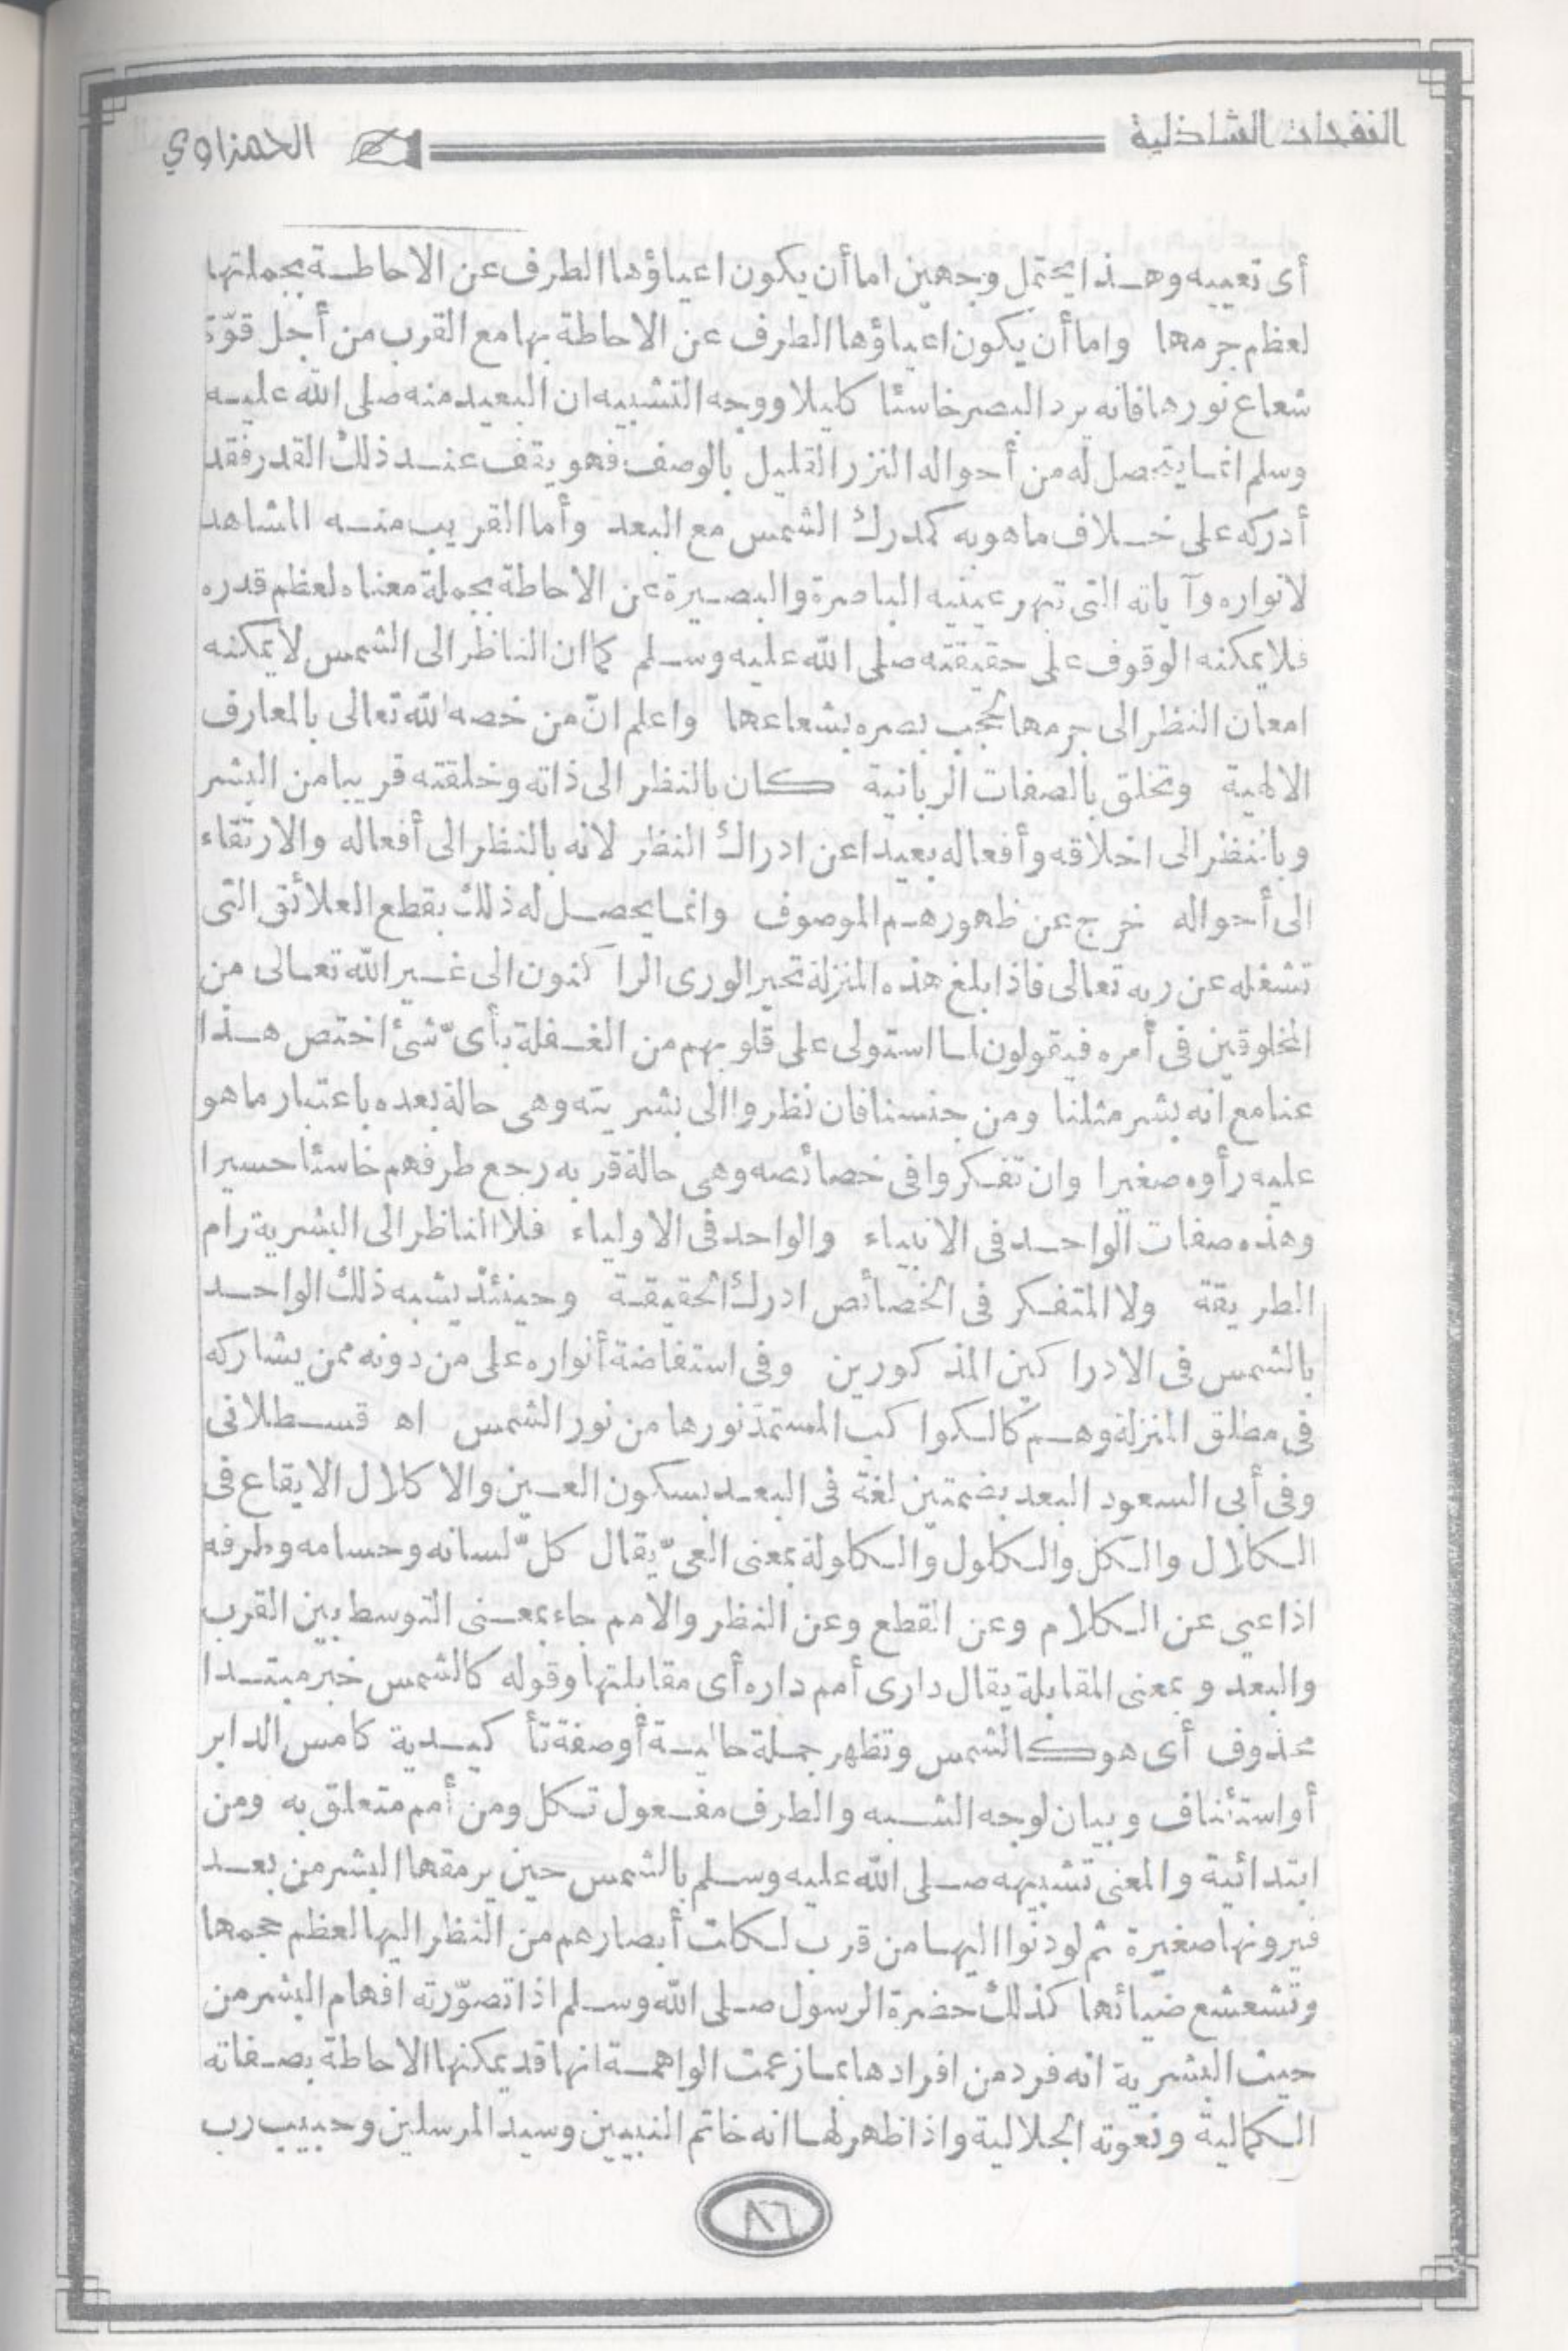 النفحات الشاذلية
الحمزاوي
أى تعييه وهذا يحتمل وجهين اما أن يكون اعياؤها الطرف عن الاحاطة بجملتها
لعظم جرمها واما أن يكون اعياؤها الطرف عن الاحاطة بها مع القرب من أجل قوّة
شعاع نورها فانه يرد البصر خاسئا كليلا ووجه التشبيه ان البعيد منه صلى الله عليه
وسلم انما يتحصل له من أحواله النزر القليل بالوصف فهو يقف عند ذلك القدر فقد
أدركه على خلاف ما هو به كمدرك الشمس مع البعد وأما القريب منه المشاهد
لانواره وآياته التى تبهر عينيه الباصرة والبصيرة عن الاحاطة بجملة معناه لعظم قدره
فلا يمكنه الوقوف على حقيقته صلى الله عليه وسلم كما ان الناظر الى الشمس لا يمكنه
امعان النظر الى جرمها لحجب بصره بشعاعها واعلم انّ من خصه الله تعالى بالمعارف
الالهية وتخلق بالصفات الربانية كان بالنظر الى ذاته وخلقته قريبا من البشر
وبالنظر الى اخلاقه وأفعاله بعيدا عن ادراك النظر لانه بالنظر الى أفعاله والارتقاء
الى أحواله خرج عن ظهور هم الموصوف وانما يحصل له ذلك بقطع العلائق التى
تشغله عن ربه تعالى فاذا بلغ هذه المنزلة تحير الورى الراكنون الى غير الله تعالى من
المخلوقين فى أمره فيقولون لما استولى على قلوبهم من الغفلة بأىّ شئ اختص هذا
عنا مع انه بشر مثلنا ومن جنسنا فان نظروا الى بشريته وهى حالة بعده باعتبار ما هو
عليه رأوه صغيرا وان تفكروا فى خصائصه وهى حالة قربه رجع طرفهم خاسئا حسيرا
وهذه صفات الواحد فى الانبياء والواحد فى الاولياء فلا الناظر الى البشرية رام
الطريقة ولا المتفكر فى الخصائص ادرك الحقيقة وحينئذ يشبه ذلك الواحد
بالشمس فى الادراكين المذكورين وفى استفاضة أنواره على من دونه ممن يشاركه
فى مطلق المنزلة وهم كالكواكب المستمدّ نورها من نور الشمس اه قسطلانى
وفى أبى السعود البعد بضمتين لغة فى البعد بسكون العين والاكلال الايقاع فى
الكلال والكل والكلول والكلولة بمعنى العىّ يقال كلّ لسانه وحسامه وطرفه
اذا عيى عن الكلام وعن القطع وعن النظر والامم جاء بمعنى التوسط بين القرب
والبعد وبمعنى المقابلة يقال دارى أمم داره أى مقابلتها وقوله كالشمس خبر مبتدا
محذوف أى هو كالشمس وتظهر جملة حالية أو صفة تأكيدية كامس الدابر
أو استئناف وبيان لوجه الشبه والطرف مفعول تكل ومن أمم متعلق به ومن
ابتدائية والمعنى تشبيهه صلى الله عليه وسلم بالشمس حين يرمقها البشر من بعد
فيرونها صغيرة ثم لو دنوا اليها من قرب لكلت أبصارهم من النظر اليها لعظم حجمها
وتشعشع ضيائها كذلك حضرة الرسول صلى الله وسلم اذا تصوّرته افهام البشر من
حيث البشرية انه فرد من افرادها بما زعمت الواهمة انها قد يمكنها الاحاطة بصفاته
الكمالية ونعوته الجلالية واذا ظهر لها انه خاتم النبيين وسيد المرسلين وحبيب رب
٨٦